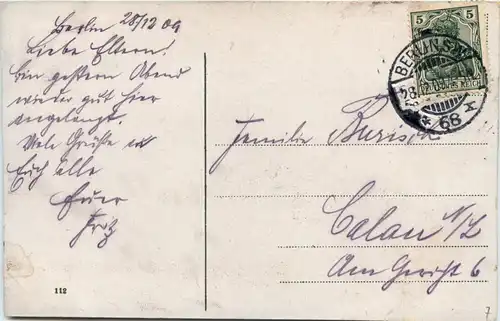 Berlin 28/12 09
Liebe Eltern!
bin gestern Abend
wieder gut hier
angelangt.
Viele Grüße an
Euch alle
Euer
Fritz
5 5
BERLIN S.W.
68
Familie
Calau N/L
Am Gericht 6
112
7